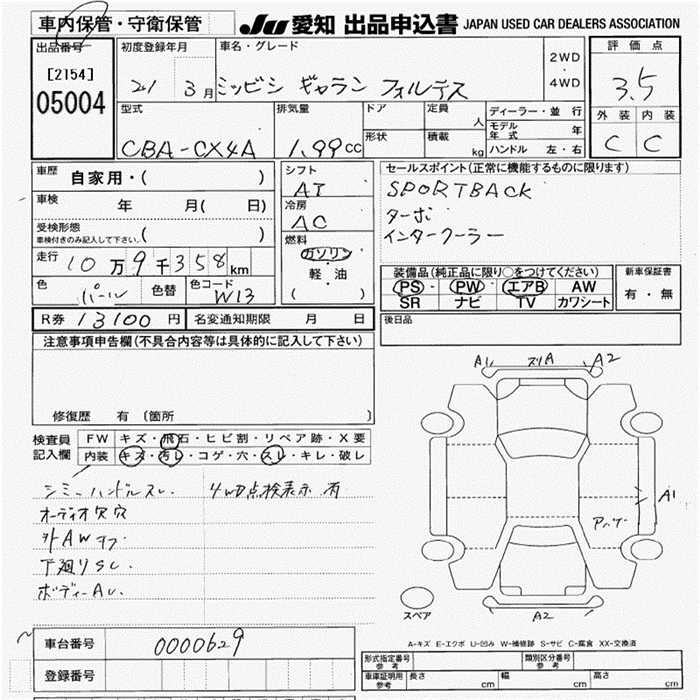 車内保管・守衛保管 JU 愛知 出品申込書 JAPAN USED CAR DEALERS ASSOCIATION
出品番号 初度登録年月 車名・グレード 2WD・4WD 評価点
[2154]
05004 21 3月 ミッビシ ギャラン フォルテス 3.5
型式 排気量 ドア 定員 人 ディーラー・並行 外装 内装
CBA-CX4A 1.99CC 形状 積載 kg モデル年式 年 C C
ハンドル 左・右
車歴 自家用・( ) シフト AT セールスポイント(正常に機能するものに限ります)
車検 年 月( 日) 冷房 AC SPORTBACK
受検形態 ターボ
車検付きのみ記入して下さい。( ) 燃料 インタークーラー
走行 10万9千358km ガソリン
軽・油
( )
色 パール 色替 色コード W13
装備品(純正品に限り○をつけてください) 新車保証書
PS PW エアB AW 有・無
SR ナビ TV カワシート
R券 13100円 名変通知期限 月 日 後日品
注意事項申告欄(不具合内容等は具体的に記入して下さい)
修復歴 有 〔箇所 〕
検査員記入欄 FW キズ・飛石・ヒビ割・リペア跡・X要
内装 キズ・汚レ・コゲ・穴・スレ・キレ・破レ
シミ ハンドルスレ. 4WD点検表示 有
オーディオ欠穴
外AWキズ
下廻りSレ.
ボディーAレ.
A1 スリA A2
A1
スペア
A2
A-キズ E-エクボ U-凹み W-補修跡 S-サビ C-腐食 XX-交換済
車台番号 0000629
登録番号
形式指定番号 参考 類別区分番号 参考
車庫証明用 参考 長さ cm 幅 cm 高さ cm